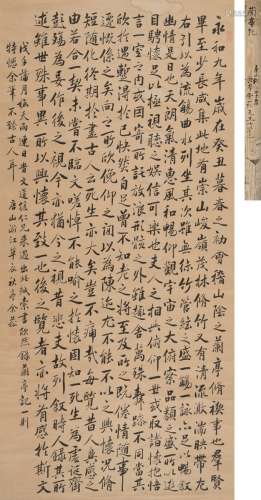 蘭亭記
永和九年歲在癸丑暮春之初會稽山陰之蘭亭脩禊事也羣賢
畢至少長咸集此地有崇山峻嶺茂林脩竹又有清流激湍映帶左
右引以為流觴曲水列坐其次雖無絲竹管絃之盛一觴一詠亦足以暢叙
幽情是日也天朗氣清惠風和暢仰觀宇宙之大俯察品類之盛所以遊
目騁懷足以極視聽之娛信可樂也夫人之相與俯仰一世或取諸懷抱悟
言一室之内或因寄所託放浪形骸之外雖趣舍萬殊靜躁不同當其
欣於所遇暫得於己快然自足曾不知老之將至及其所之既倦情隨事
遷感慨係之矣向之所欣俛仰之間以為陳迹猶不能不以之興懷況脩
短隨化終期於盡古人云死生亦大矣豈不痛哉每覽昔人興感之
由若合一契未嘗不臨文嗟悼不能喻之於懷固知一死生為虛誕齊
彭殤為妄作後之視今亦猶今之視昔悲夫故列叙時人錄其所
述雖世殊事異所以興懷其致一也後之覽者亦將有感於斯文